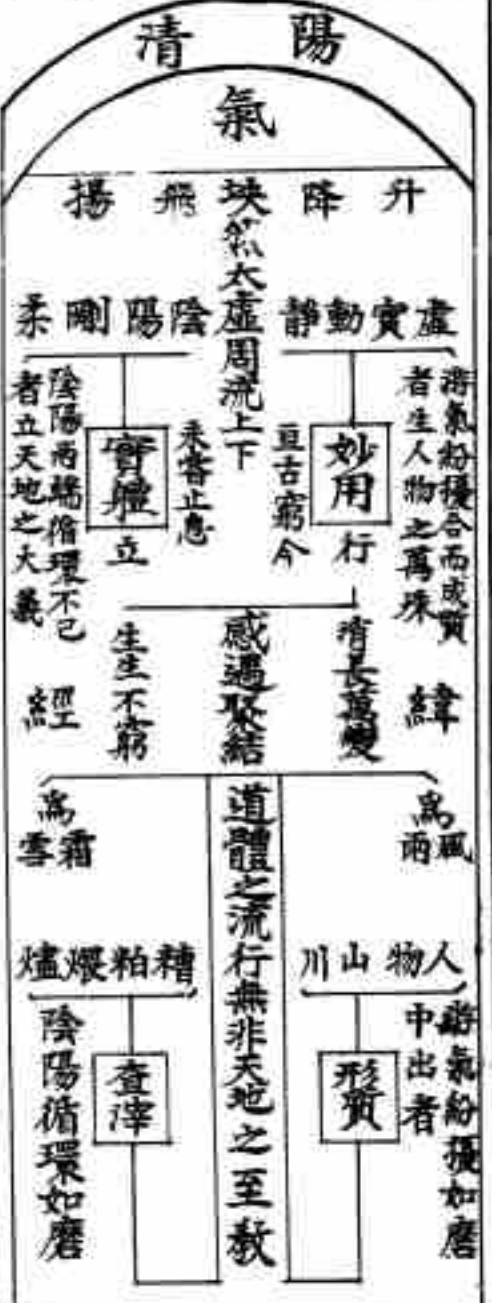 陽清
氣
升降飛揚
坱然太虛周流上下
虛實動靜
陰陽剛柔
游氣紛擾合而成質
者生人物之萬殊
妙用
行
亘古窮今
未嘗止息
實體
立
陰陽兩端循環不已
者立天地之大義
緯
消長萬變
感遇聚結
生生不窮
經
為風雨
為霜雪
道體之流行無非天地之至教
人物山川
糟粕煨燼
游氣紛擾如磨
中出者
形質
查滓
陰陽循環如磨